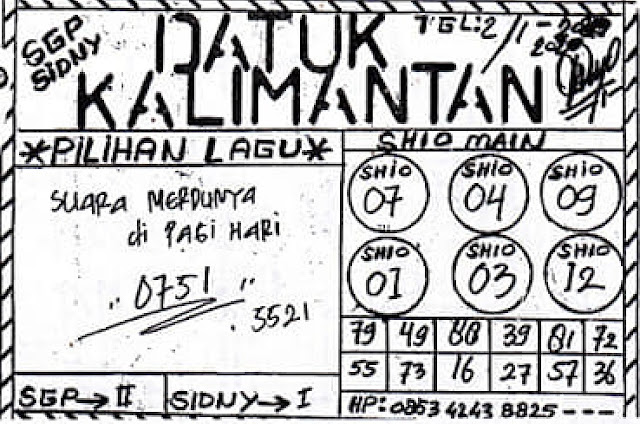 SGP
SIDNY
DATUK
KALIMANTAN
TGL: 2/1-
*PILIHAN LAGU*
SUARA MERDUNYA
di PAGI HARI
"0751"
5521
SGP→II
SIDNY→I
SHIO MAIN
SHIO 07
SHIO 04
SHIO 09
SHIO 01
SHIO 03
SHIO 12
79 49 80 39 01 72
55 73 16 27 57 36
HP: 0853 4243 8825---